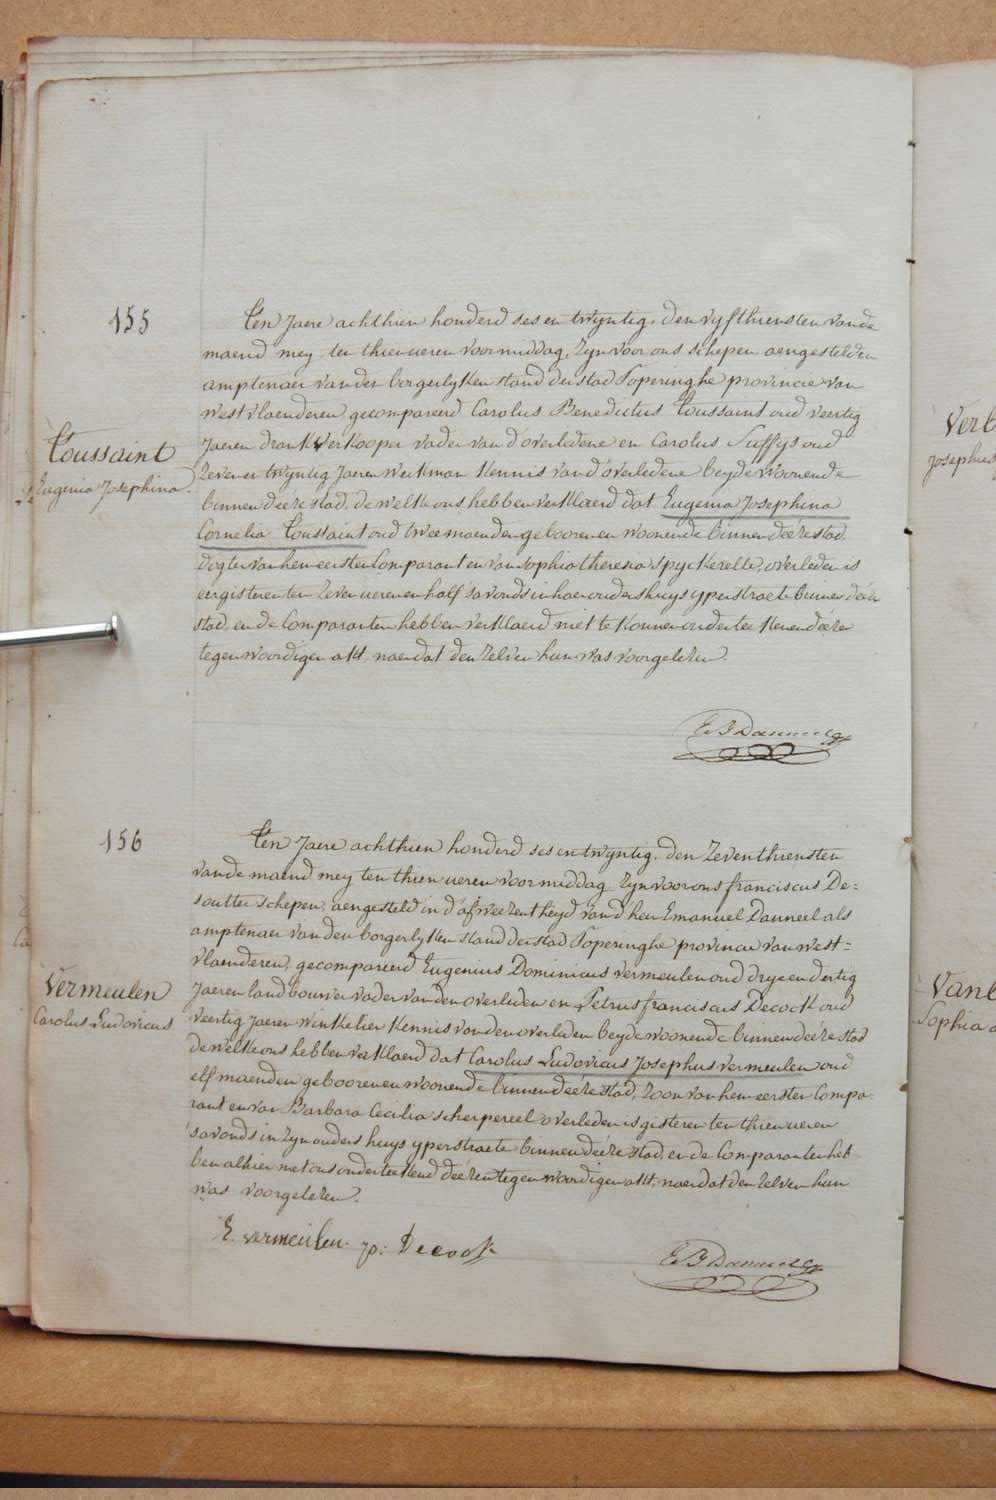 155
Ten Jaere achthien honderd ses en twyntig, den vyfthiensten van de
maend mey, ten thien ueren voormiddag, Zyn voor ons schepen aengestelden
amptenaer van den borgerlyken stand der stad Poperinghe provincie van
westvlaenderen, gecompareerd Carolus Benedictus Toussaint oud veertig
Jaeren drank verkooper vader van d'overledene en Carolus Suffys oud
Zeven en twyntig Jaeren werkman Kennis van d'overledene beyde woonende
binnen deéze stad, de welke ons hebben verklaerd dat Eugenia Josephina
Cornelia Toussaint oud twee maenden gebooren en woonende binnen deéze stad,
dogter van hem eersten Comparant en van Sophia theresia Spyckerelle, overleden is
eergisteren ten Zeven ueren en half s'avonds in haer ouders huys yperstraete binnen deéze
stad, en de Comparanten hebben verklaerd niet te Konnen onderteekenen deézen
tegenwoordigen akt, naer dat den Zelven hun was voorgelezen.
Toussaint
Eugenia Josephina
E B Danneel
156
Ten Jaere achthien honderd ses en twyntig, den Zeventhiensten
van de maend mey ten thien ueren voormiddag Zyn voor ons franciscus De=
soutter schepen, aengesteld in d'afweezentheyd van d'heer Emanuel Danneel als
amptenaer van den borgerlyken stand der stad Poperinghe provincie van west=
vlaenderen, gecompareerd Eugenius Dominicus vermeulen oud drye en dertig
Jaeren landbouwer vader van den overleden en Petrus franciscus Decock oud
veertig Jaeren winkelier Kennis van den overleden beyde woonende binnen deéze stad
de welke ons hebben verklaerd dat Carolus Ludovicus Josephus vermeulen oud
elf maenden gebooren en woonende binnen deéze stad, Zoon van hem eersten Compa-
rant en van Barbara Cecilia scherpereel overleden is gisteren ten thien ueren
s'avonds in Zyn ouders huys yperstraete binnen deéze stad, en de Comparanten heb
ben alhier met ons onderteekend deézen tegenwoordigen akt, naer dat den zelven hun
was voorgelezen.
Vermeulen
Carolus Ludovicus
E. vermeulen. p: Decock
E B Danneel
Verb
Josephus
Vanb
Sophia